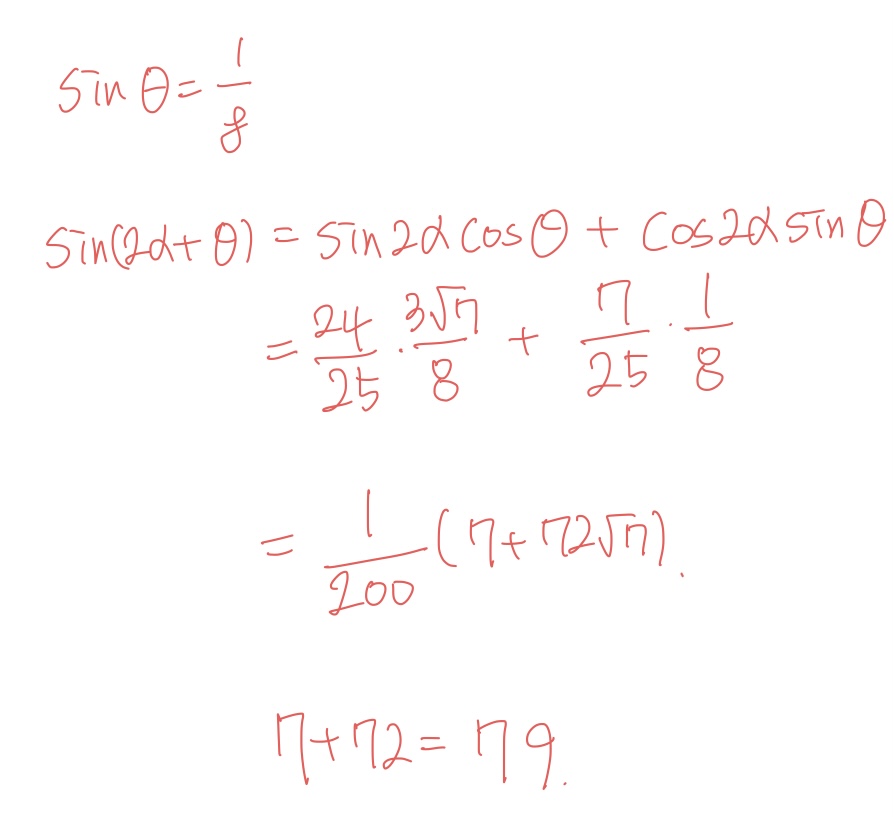 sin θ = 1/8
sin(2α+θ) = sin2α cosθ + cos2α sinθ
= 24/25 · 3√7/8 + 7/25 · 1/8
= 1/200 (7+72√7).
7+72 = 79.